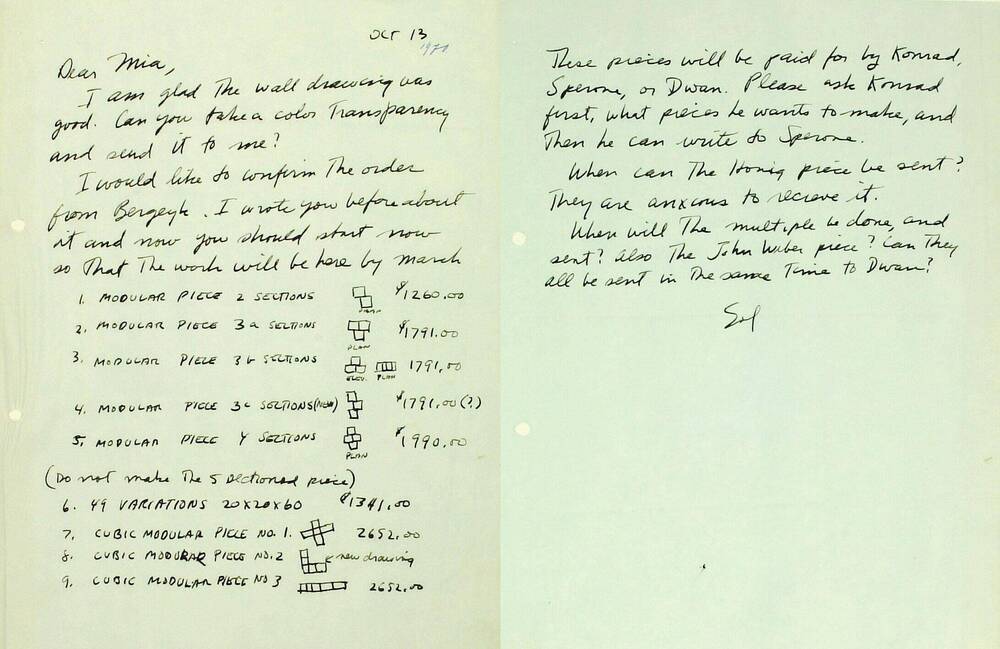 Oct 13
1970
Dear Mia,
I am glad the wall drawing was
good. Can you take a color Transparency
and send it to me?
I would like to confirm the order
from Bergeyk. I wrote you before about
it and now you should start now
so that the work will be here by march
1. MODULAR PIECE 2 SECTIONS $1260.00
PLAN
2. MODULAR PIECE 3a SECTIONS $1791.00
PLAN
3. MODULAR PIECE 3b SECTIONS 1791.00
ELEV. PLAN
4. MODULAR PIECE 3c SECTIONS (NEW) $1791.00 (?)
5. MODULAR PIECE 4 SECTIONS $1990.00
PLAN
(Do not make the 5 sectioned piece)
6. 49 VARIATIONS 20x20x60 $1341.00
7. CUBIC MODULAR PIECE NO. 1. 2652.00
8. CUBIC MODULAR PIECE NO. 2 new drawing
9. CUBIC MODULAR PIECE NO 3 2652.00
These pieces will be paid for by Konrad,
Sperone, or Dwan. Please ask Konrad
first, what pieces he wants to make, and
Then he can write to Sperone.
When can the Honig piece be sent?
They are anxious to recieve it.
When will The multiple be done, and
sent? Also The John Weber piece? Can They
all be sent in the same Time to Dwan?
Sol